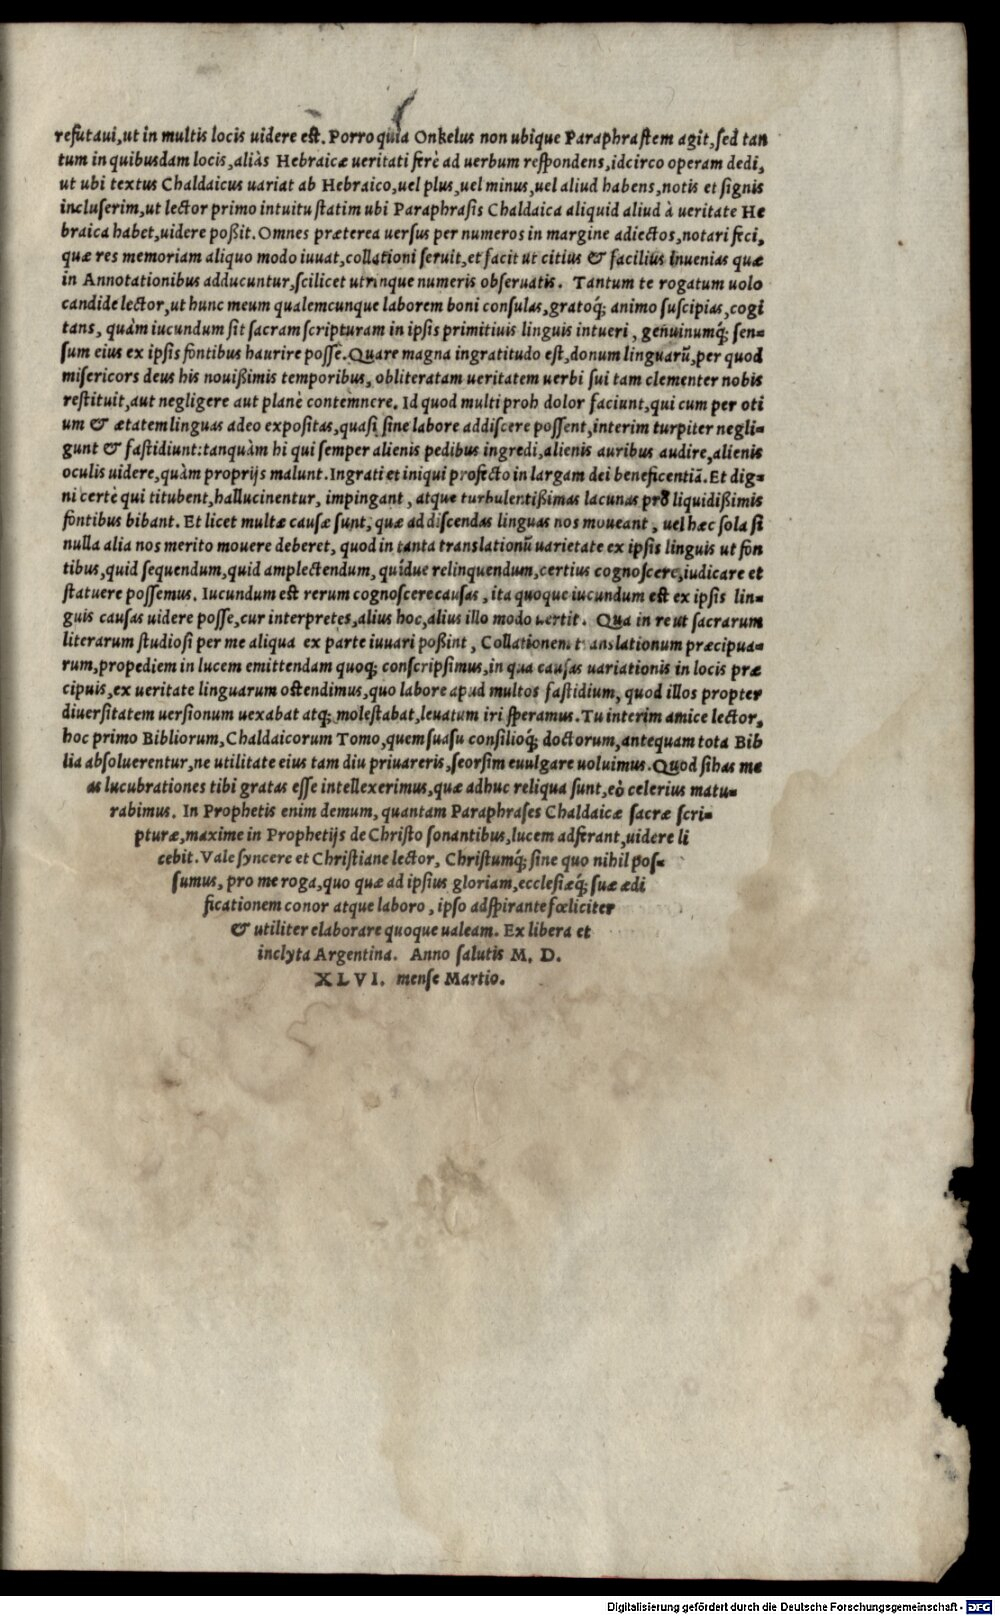 refutaui,ut in multis locis uidere est. Porro quia Onkelus non ubique Paraphrastem agit, sed tan
tum in quibusdam locis, aliàs Hebraicæ ueritati ferè ad uerbum respondens, idcirco operam dedi,
ut ubi textus Chaldaicus uariat ab Hebraico, uel plus, uel minus, uel aliud habens, notis et signis
incluserim, ut lector primo intuitu statim ubi Paraphrasis Chaldaica aliquid aliud à ueritate He
braica habet, uidere poßit. Omnes præterea uersus per numeros in margine adiectos, notari feci,
quæ res memoriam aliquo modo iuuat, collationi seruit, et facit ut citius & facilius inuenias quæ
in Annotationibus adducuntur, scilicet utrinque numeris obseruatis. Tantum te rogatum uolo
candide lector, ut hunc meum qualemcunque laborem boni consulas, gratoq́; animo suscipias, cogi
tans, quàm iucundum sit sacram scripturam in ipsis primitiuis linguis intueri, genuinumq́; sen=
sum eius ex ipsis fontibus haurire posse. Quare magna ingratitudo est, donum linguarũ, per quod
misericors deus his nouißimis temporibus, obliteratam ueritatem uerbi sui tam clementer nobis
restituit, aut negligere aut planè contemnere. Id quod multi proh dolor faciunt, qui cum per oti
um & ætatem linguas adeo expositas, quasi sine labore addiscere possent, interim turpiter negli=
gunt & fastidiunt: tanquàm hi qui semper alienis pedibus ingredi, alienis auribus audire, alienis
oculis uidere, quàm proprijs malunt. Ingrati et iniqui profecto in largam dei beneficentiã. Et dig=
ni certè qui titubent, hallucinentur, impingant, atque turbulentißimas lacunas pro liquidißimis
fontibus bibant. Et licet multæ causæ sunt, quæ ad discendas linguas nos moueant, uel hæc sola si
nulla alia nos merito mouere deberet, quod in tanta translationũ uarietate ex ipsis linguis ut fon
tibus, quid sequendum, quid amplectendum, quidue relinquendum, certius cognoscere, iudicare et
statuere possemus. Iucundum est rerum cognoscere causas, ita quoque iucundum est ex ipsis lin=
guis causas uidere posse, cur interpretes, alius hoc, alius illo modo uertit. Qua in re ut sacrarum
literarum studiosi per me aliqua ex parte iuuari poßint, Collationem translationum præcipua=
rum, propediem in lucem emittendam quoq; conscripsimus, in qua causas uariationis in locis præ
cipuis, ex ueritate linguarum ostendimus, quo labore apud multos fastidium, quod illos propter
diuersitatem uersionum uexabat atq; molestabat, leuatum iri speramus. Tu interim amice lector,
hoc primo Bibliorum, Chaldaicorum Tomo, quem suasu consilioq́; doctorum, antequam tota Bib
lia absoluerentur, ne utilitate eius tam diu priuareris, seorsim euulgare uoluimus. Quod si has me
as lucubrationes tibi gratas esse intellexerimus, quæ adhuc reliqua sunt, eò celerius matu=
rabimus. In Prophetis enim demum, quantam Paraphrases Chaldaicæ sacræ scri=
pturæ, maxime in Prophetijs de Christo sonantibus, lucem adferant, uidere li
cebit. Vale syncere et Christiane lector, Christumq́; sine quo nihil pos=
sumus, pro me roga, quo quæ ad ipsius gloriam, ecclesiæq́; suæ ædi
ficationem conor atque laboro, ipso adspirante fœliciter
& utiliter elaborare quoque ualeam. Ex libera et
inclyta Argentina. Anno salutis M. D.
XLVI. mense Martio.
Digitalisierung gefördert durch die Deutsche Forschungsgemeinschaft - DFG